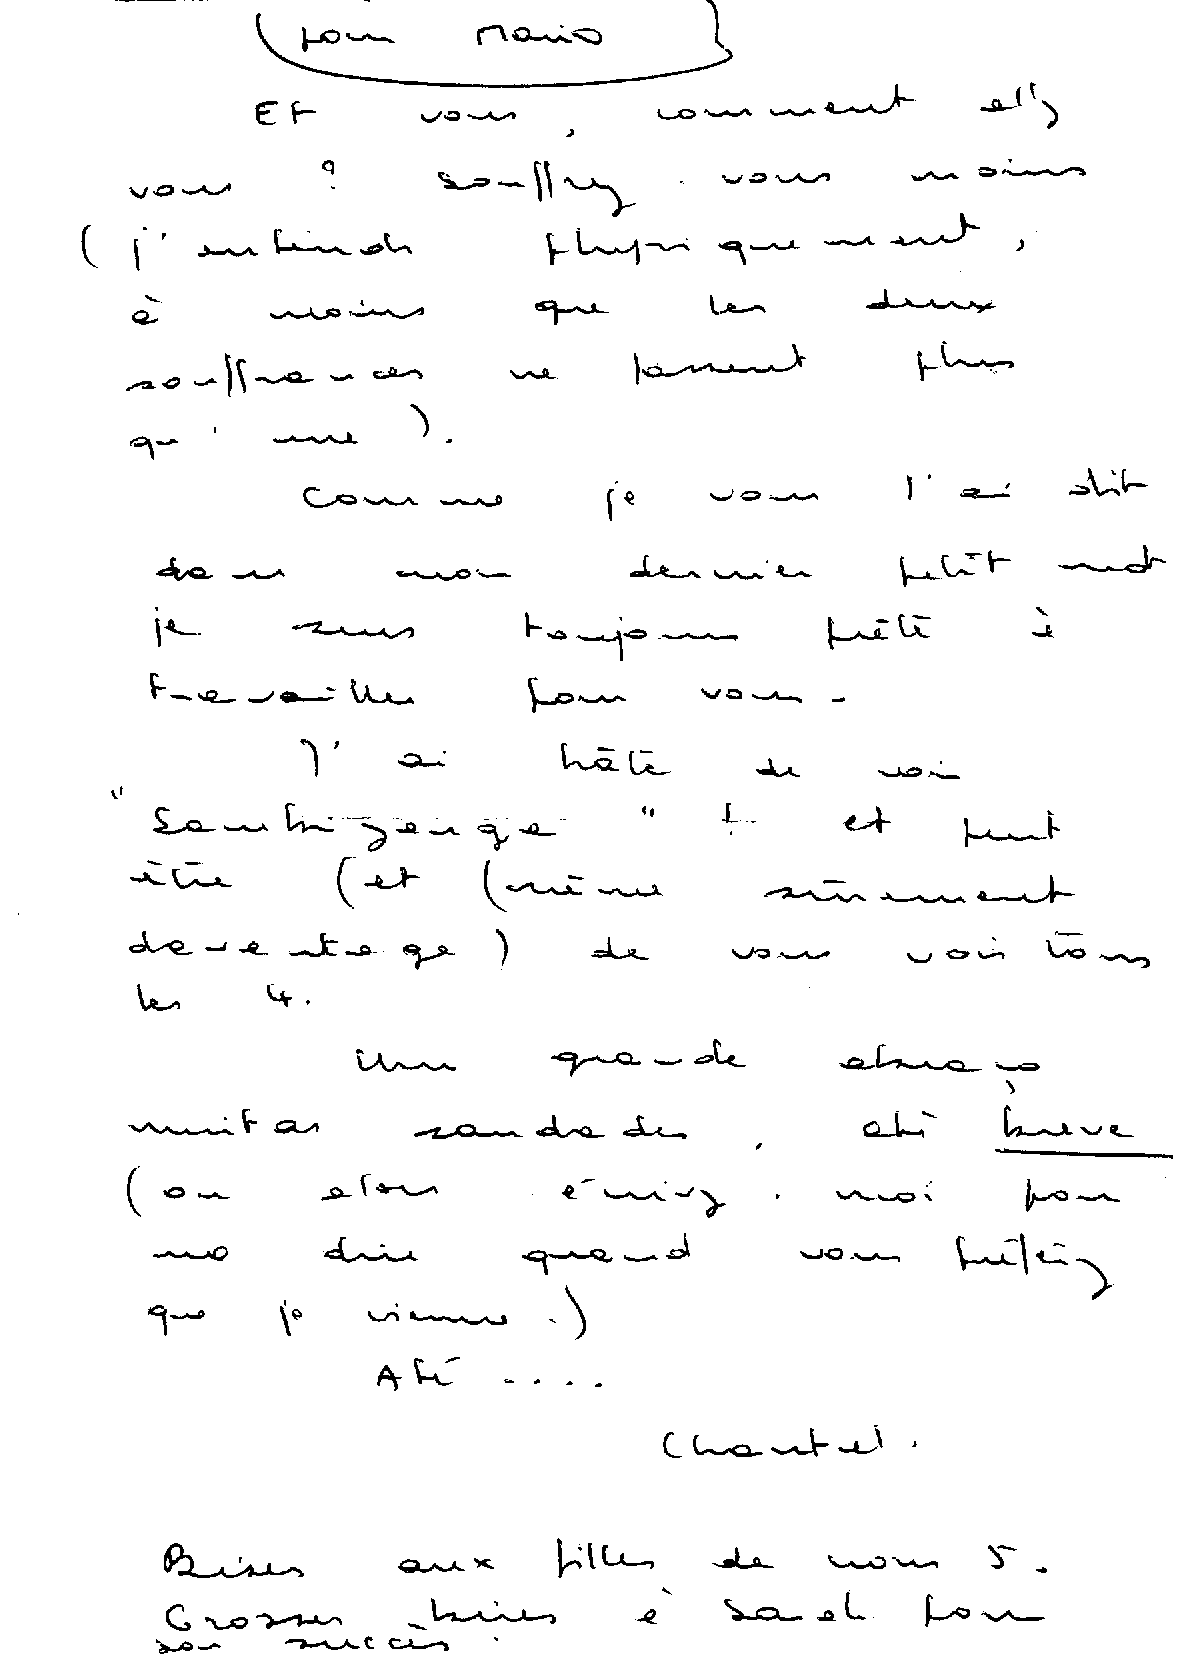 pour Mario
Et vous, comment allez
vous ? Souffrez-vous moins
(j'entends physiquement,
à moins que les deux
souffrances ne fassent plus
qu'une).
Comme je vous l'ai dit
dans mon dernier petit mot
je suis toujours prête à
travailler pour vous.
J'ai hâte de voir
"Sambizanga" ! et peut
être (et (même sûrement
davantage) de vous voir tous
les 4.
Um grande abraço
muitas saudades, até breve
(ou alors écrivez-moi pour
me dire quand vous préférez
que je vienne.)
Até ....
Chantal.
Bises aux filles de nous 5.
Grosses bises à Sarah pour
son succès.